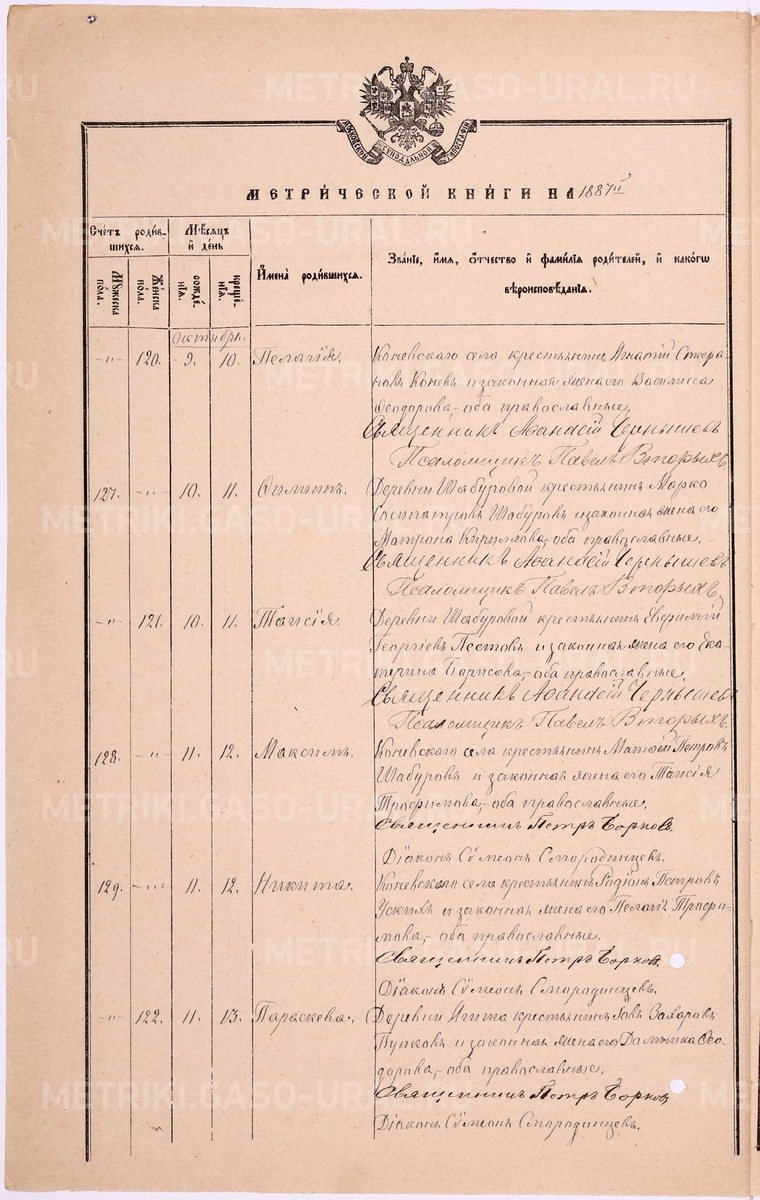 METRIKI.GASO-URAL.RU
МОСКОВСКОЙ СѴНОДАЛЬНОЙ ТИПОГРАФІИ
МЕТРИЧЕСКОЙ КНИГИ НА 1887 й
Счетъ родившихся.
Мужеска пола.
Женска пола.
Мѣсяцъ и день
рожденія.
крещенія.
Имена родившихся.
Званіе, имя, отчество и фамилія родителей, и какогѡ
вѣроисповѣданія.
Октябрь.
-"- 120. 9. 10. Пелагія. Коневскаго села крестьянинъ Игнатій Стефа-
новъ Коневъ и законная жена его Василисса
Ѳеодорова, оба православные.
Священникъ Аѳанасій Чернышевъ
Псаломщикъ Павелъ Вторыхъ
127. -"- 10. 11. Филиппъ. Деревни Шабуровой крестьянинъ Марко
Сосипатровъ Шабуровъ и законная жена его
Матрона Кириллова, оба православные.
Священникъ Аѳанасій Чернышевъ
Псаломщикъ Павелъ Вторыхъ
-"- 121. 10. 11. Таисія. Деревни Шабуровой крестьянинъ Евфимій
Георгіевъ Пестовъ и законная жена его Ека-
терина Борисова, оба православные.
Священникъ Аѳанасій Чернышевъ
Псаломщикъ Павелъ Вторыхъ.
128. -"- 11. 12. Максимъ. Коневскаго села крестьянинъ Матѳій Петровъ
Шабуровъ и законная жена его Таисія
Трофимова, оба православные.
Священникъ Петръ
Діаконъ Сѵмеонъ Смародинцевъ.
129. -"- 11. 12. Никита. Коневскаго села крестьянинъ Родіонъ Петровъ
Ускихъ и законная жена его Пелагія Трофи-
мова, оба православные.
Священникъ Петръ
Діаконъ Сѵмеонъ Смародинцевъ.
-"- 122. 11. 13. Параскева. Деревни крестьянинъ Захаровъ
Пупковъ и законная жена его Домника Ѳео-
дорова, оба православные.
Священникъ Петръ
Діаконъ Сѵмеонъ Смародинцевъ.